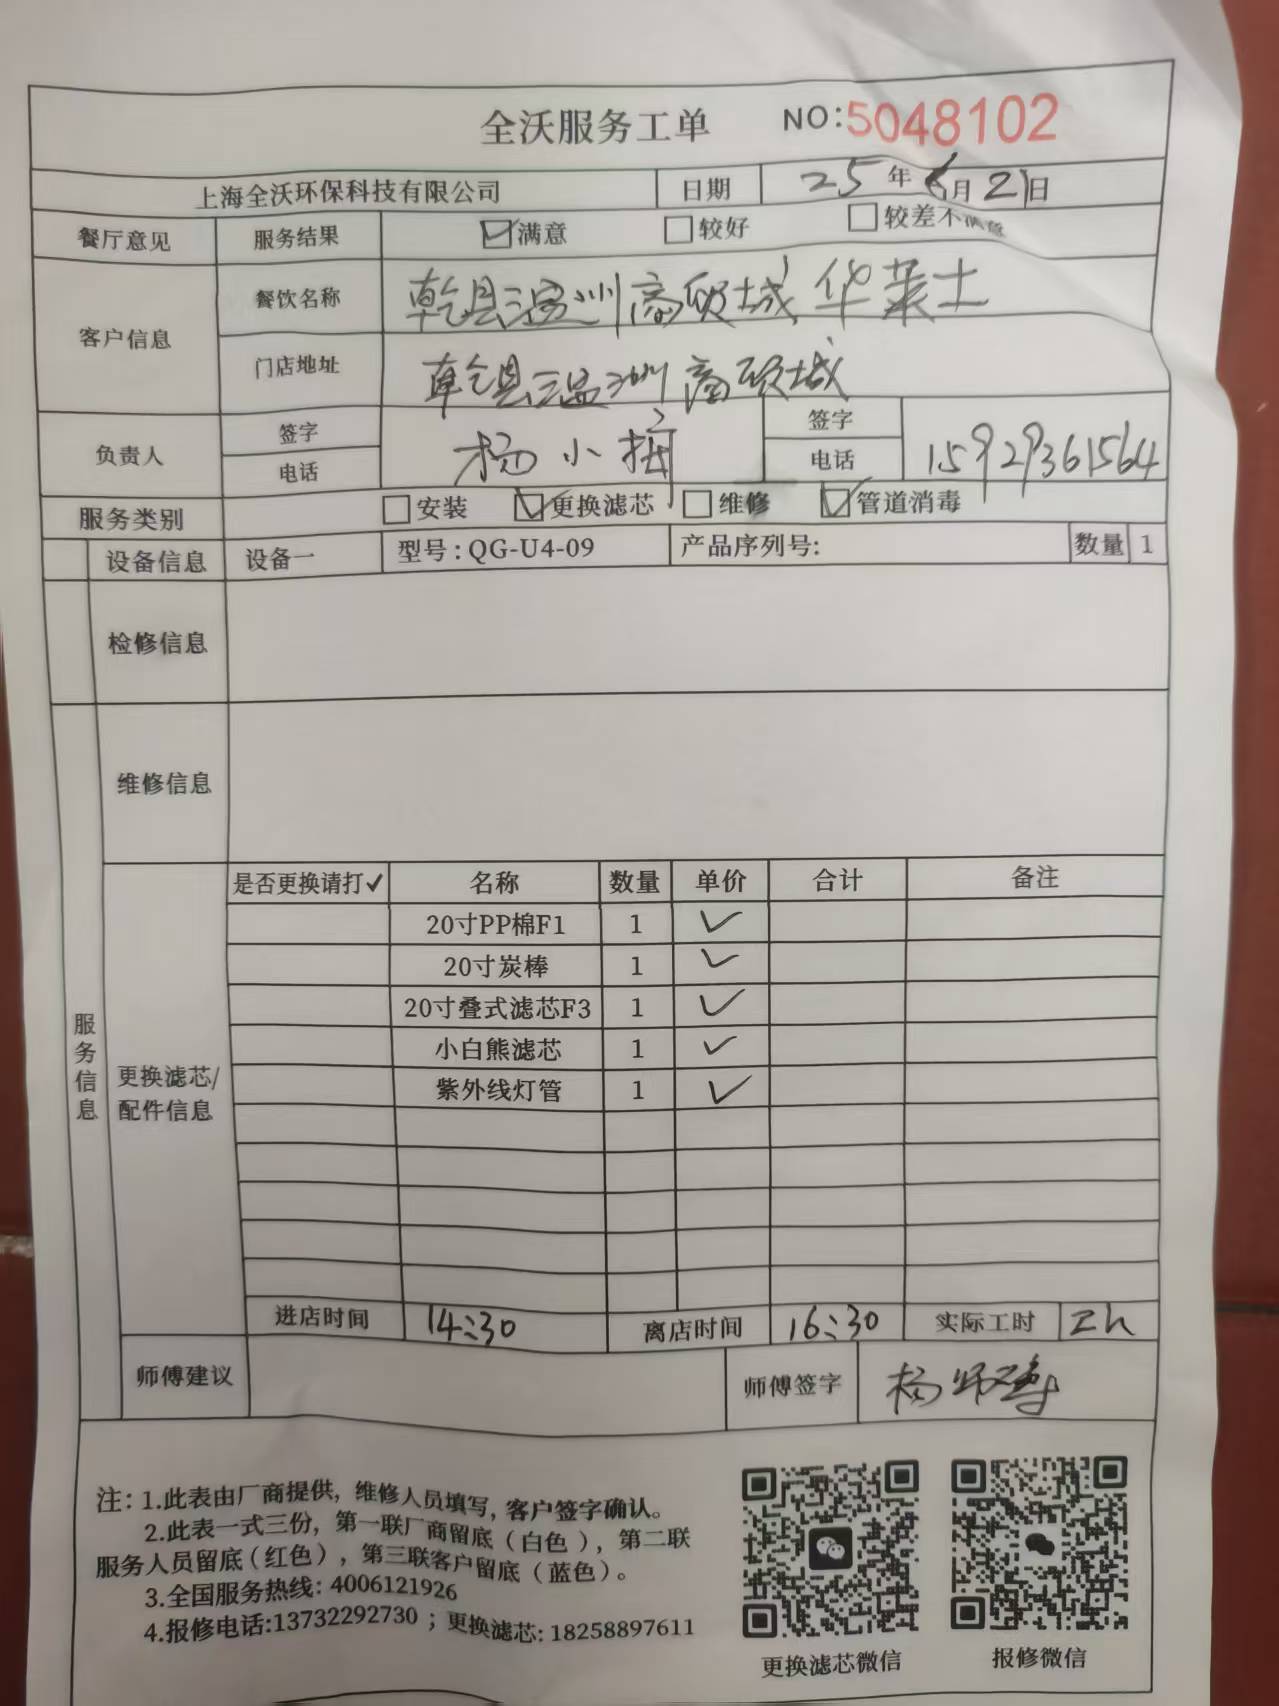 全沃服务工单 NO:5048102
上海全沃环保科技有限公司 日期 25年6月21日
餐厅意见 服务结果 ☑满意 □较好 □较差不满意
客户信息 餐饮名称 乾县温州商贸城华莱士
门店地址 乾县温州商贸城
负责人 签字 杨小 签字
电话 电话 15929361564
服务类别 □安装 ☑更换滤芯 □维修 ☑管道消毒
设备信息 设备一 型号:QG-U4-09 产品序列号: 数量 1
检修信息
维修信息
服务信息
更换滤芯/
配件信息
是否更换请打✓ 名称 数量 单价 合计 备注
20寸PP棉F1 1 ✓
20寸炭棒 1 ✓
20寸叠式滤芯F3 1 ✓
小白熊滤芯 1 ✓
紫外线灯管 1 ✓
进店时间 14:30 离店时间 16:30 实际工时 2h
师傅建议 师傅签字 杨师傅
注: 1.此表由厂商提供, 维修人员填写, 客户签字确认。
2.此表一式三份, 第一联厂商留底(白色), 第二联
服务人员留底(红色), 第三联客户留底(蓝色)。
3.全国服务热线: 4006121926
4.报修电话:13732292730; 更换滤芯: 18258897611
更换滤芯微信 报修微信